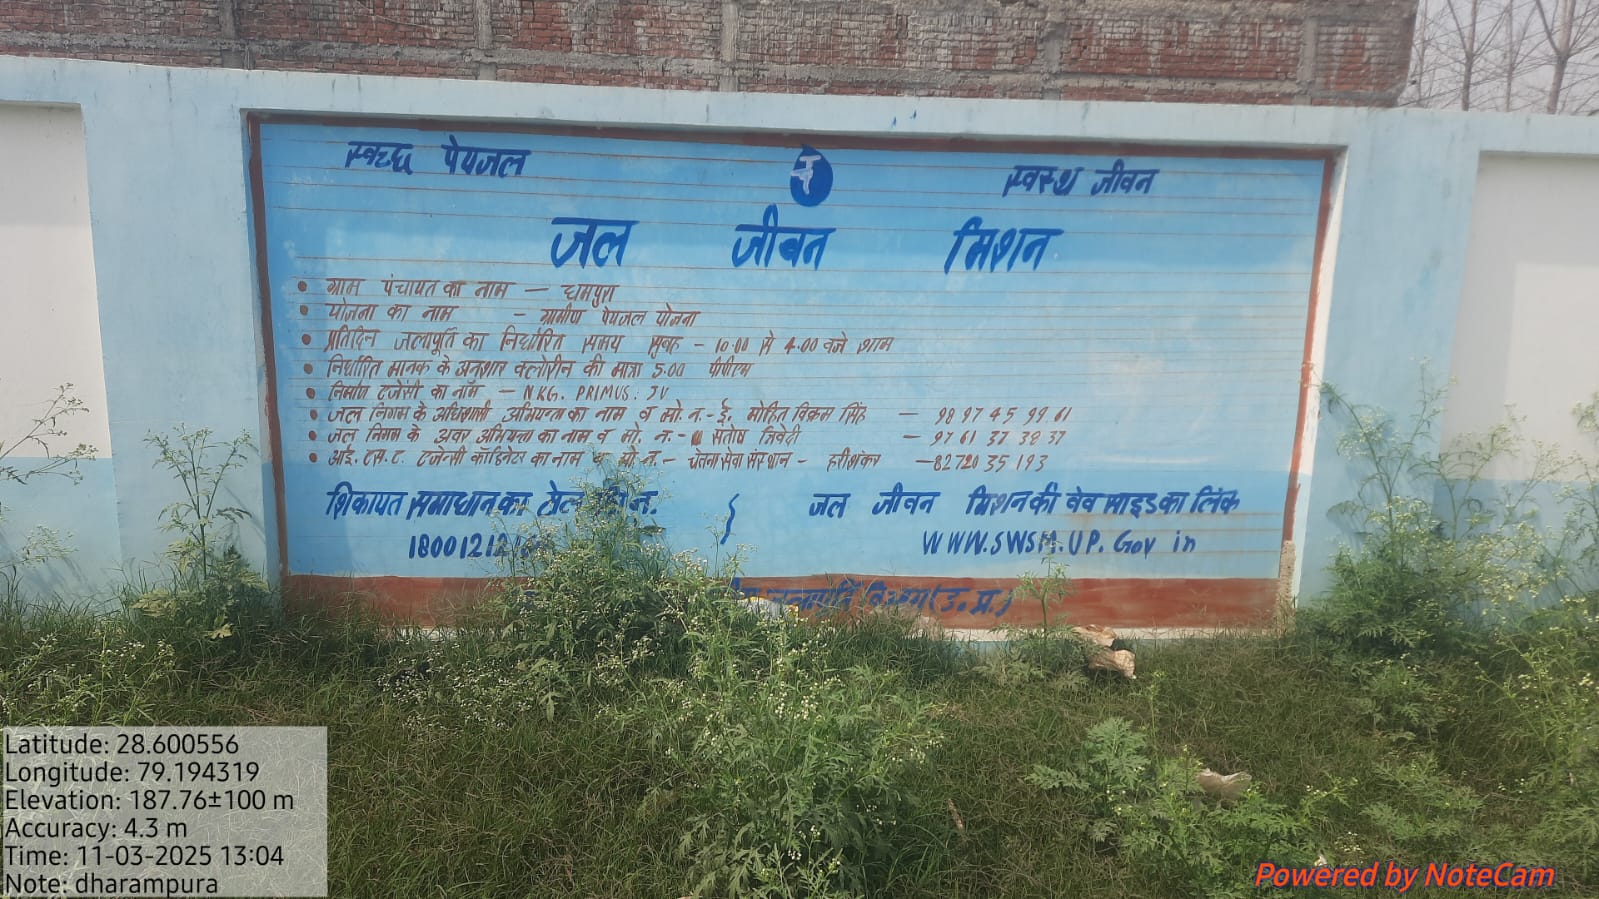 स्वच्छ पेयजल
स्वस्थ जीवन
जल जीवन मिशन
• ग्राम पंचायत का नाम — धमपुरा
• योजना का नाम - ग्रामीण पेयजल योजना
• प्रतिदिन जलापूर्ति का निर्धारित समय सुबह - 10.00 से 4.00 बजे शाम
• निर्धारित मानक के अनुशार क्लोरीन की मात्रा 5.00 पीपीएम
• निर्माण एजेंसी का नॉम — NKG. PRIMUS. JV
• जल निगम के अधिशासी अभियन्ता का नाम व मो. न.- ई. मोहित विक्रम सिंह — 98 97 45 99 61
• जल निगम के अवर अभियन्ता का नाम व मो. न.- संतोष त्रिवेदी — 97 61 37 38 37
• आई. एस. ए. एजेन्सी कॉर्डिनेटर का नाम व मो. न.- चेतना सेवा संस्थान - हरीशंकर —82720 35 193
शिकायत समाधान का टोल न.
जल जीवन मिशन की वेव साइड का लिंक
18001212
WWW.SWSM.UP.Gov in
जलापूर्ति विभाग (उ.प्र.)
Latitude: 28.600556
Longitude: 79.194319
Elevation: 187.76±100 m
Accuracy: 4.3 m
Time: 11-03-2025 13:04
Note: dharampura
Powered by NoteCam